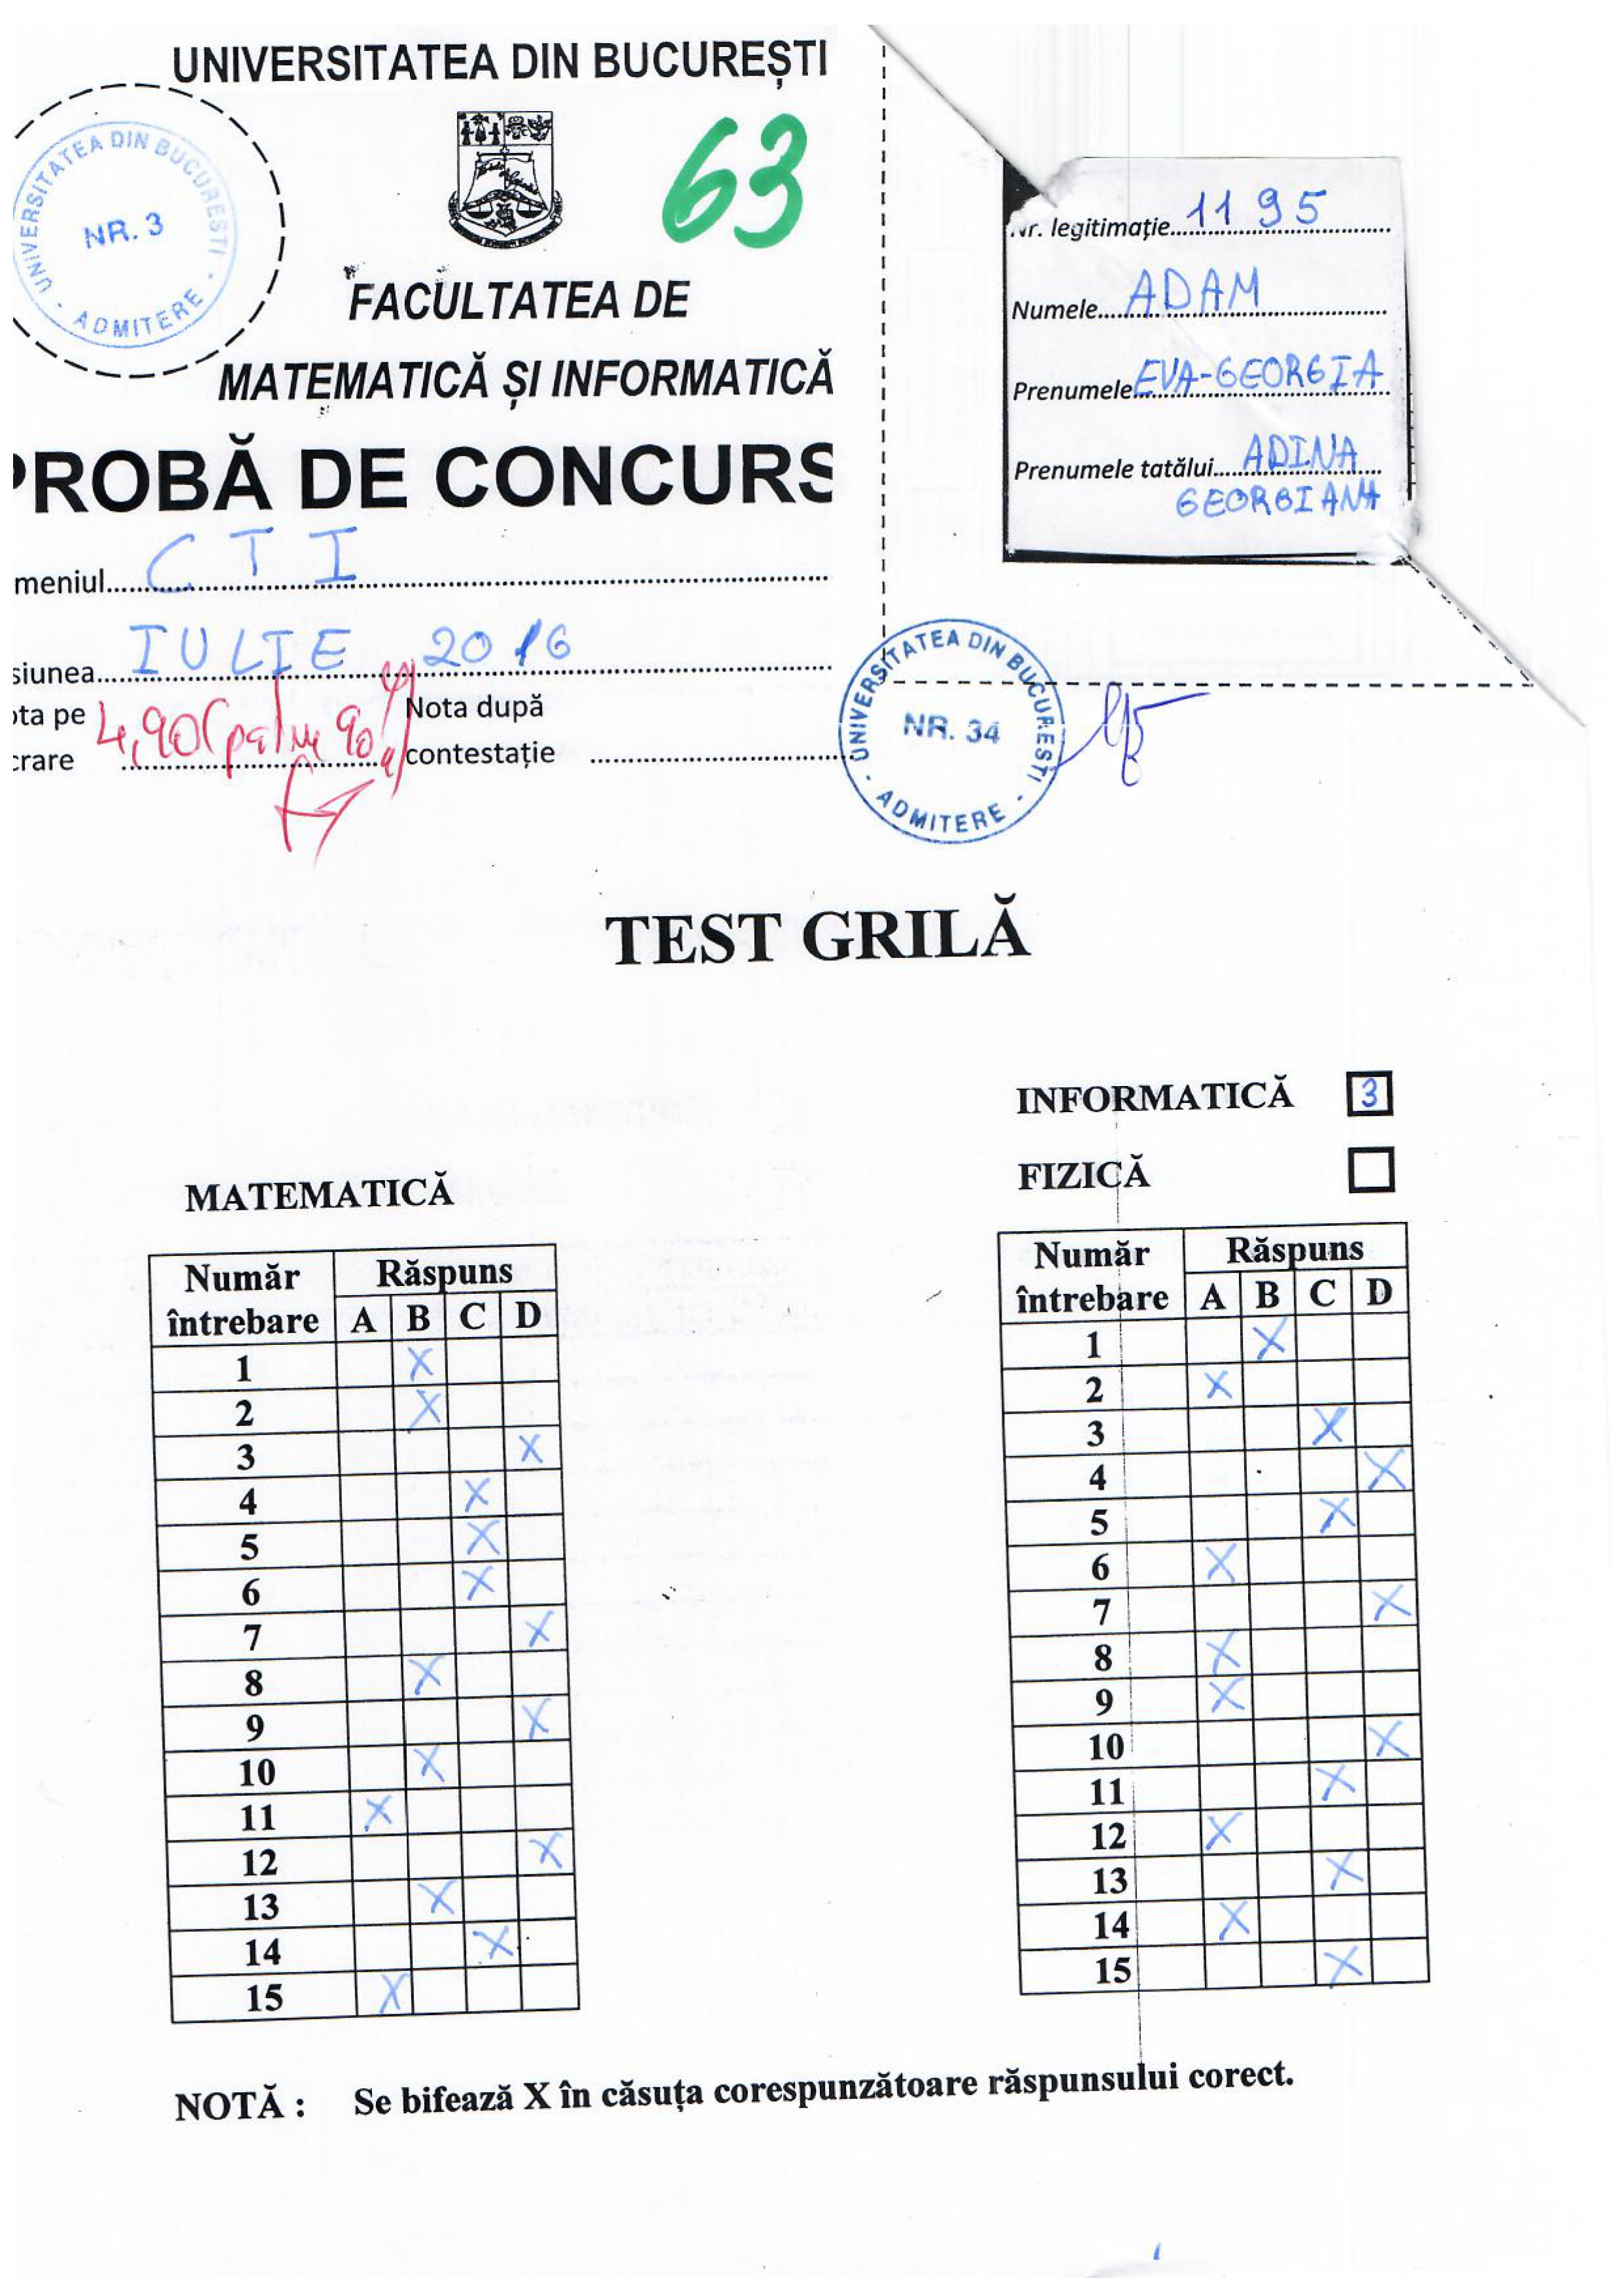 UNIVERSITATEA DIN BUCUREȘTI
63
UNIVERSITATEA DIN BUCUREȘTI - ADMITERE -
NR. 3
FACULTATEA DE
MATEMATICĂ ȘI INFORMATICĂ
PROBĂ DE CONCURS
meniul CTI
siunea IULIE 2016
ota pe
crare 4,90 (patru 90%)
Nota după
contestație
Nr. legitimație 1195
Numele ADAM
Prenumele EVA-GEORGIA
Prenumele tatălui ADINA
GEORGIANA
UNIVERSITATEA DIN BUCUREȘTI - ADMITERE -
NR. 34
TEST GRILĂ
INFORMATICĂ 3
FIZICĂ
MATEMATICĂ
Număr întrebare Răspuns
A B C D
1 X
2 X
3 X
4 X
5 X
6 X
7 X
8 X
9 X
10 X
11 X
12 X
13 X
14 X
15 X
Număr întrebare Răspuns
A B C D
1 X
2 X
3 X
4 X
5 X
6 X
7 X
8 X
9 X
10 X
11 X
12 X
13 X
14 X
15 X
NOTĂ : Se bifează X în căsuța corespunzătoare răspunsului corect.